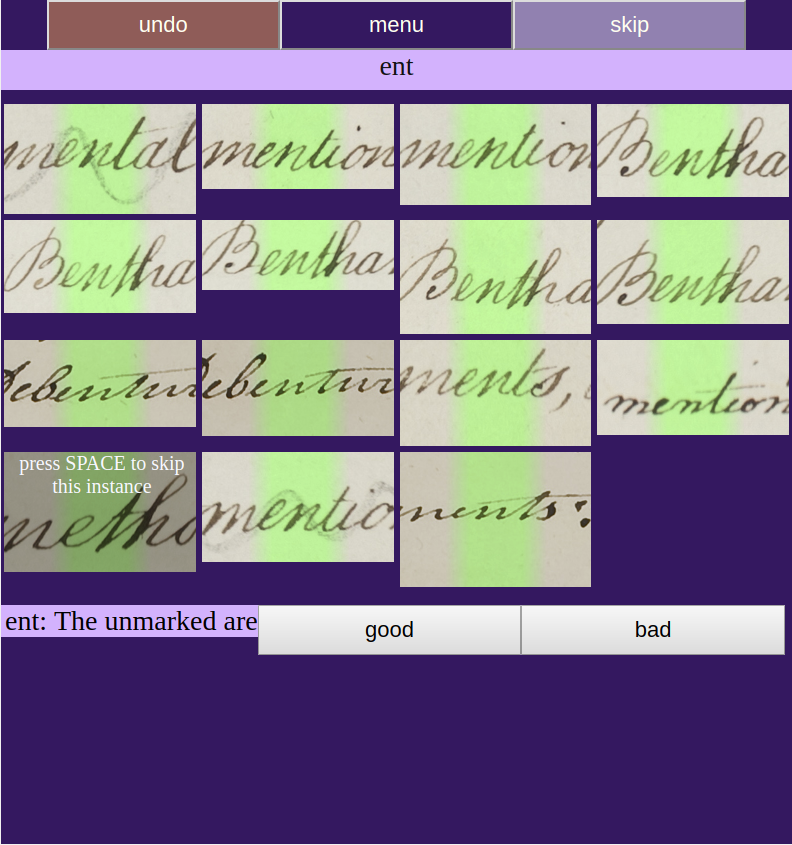 undo menu skip
ent
mental mention mention Bentha
Bentha Bentha Bentha Bentha
Debentur ebentur ments, mention
press SPACE to skip
this instance
metho mentio ments:
ent: The unmarked are good bad